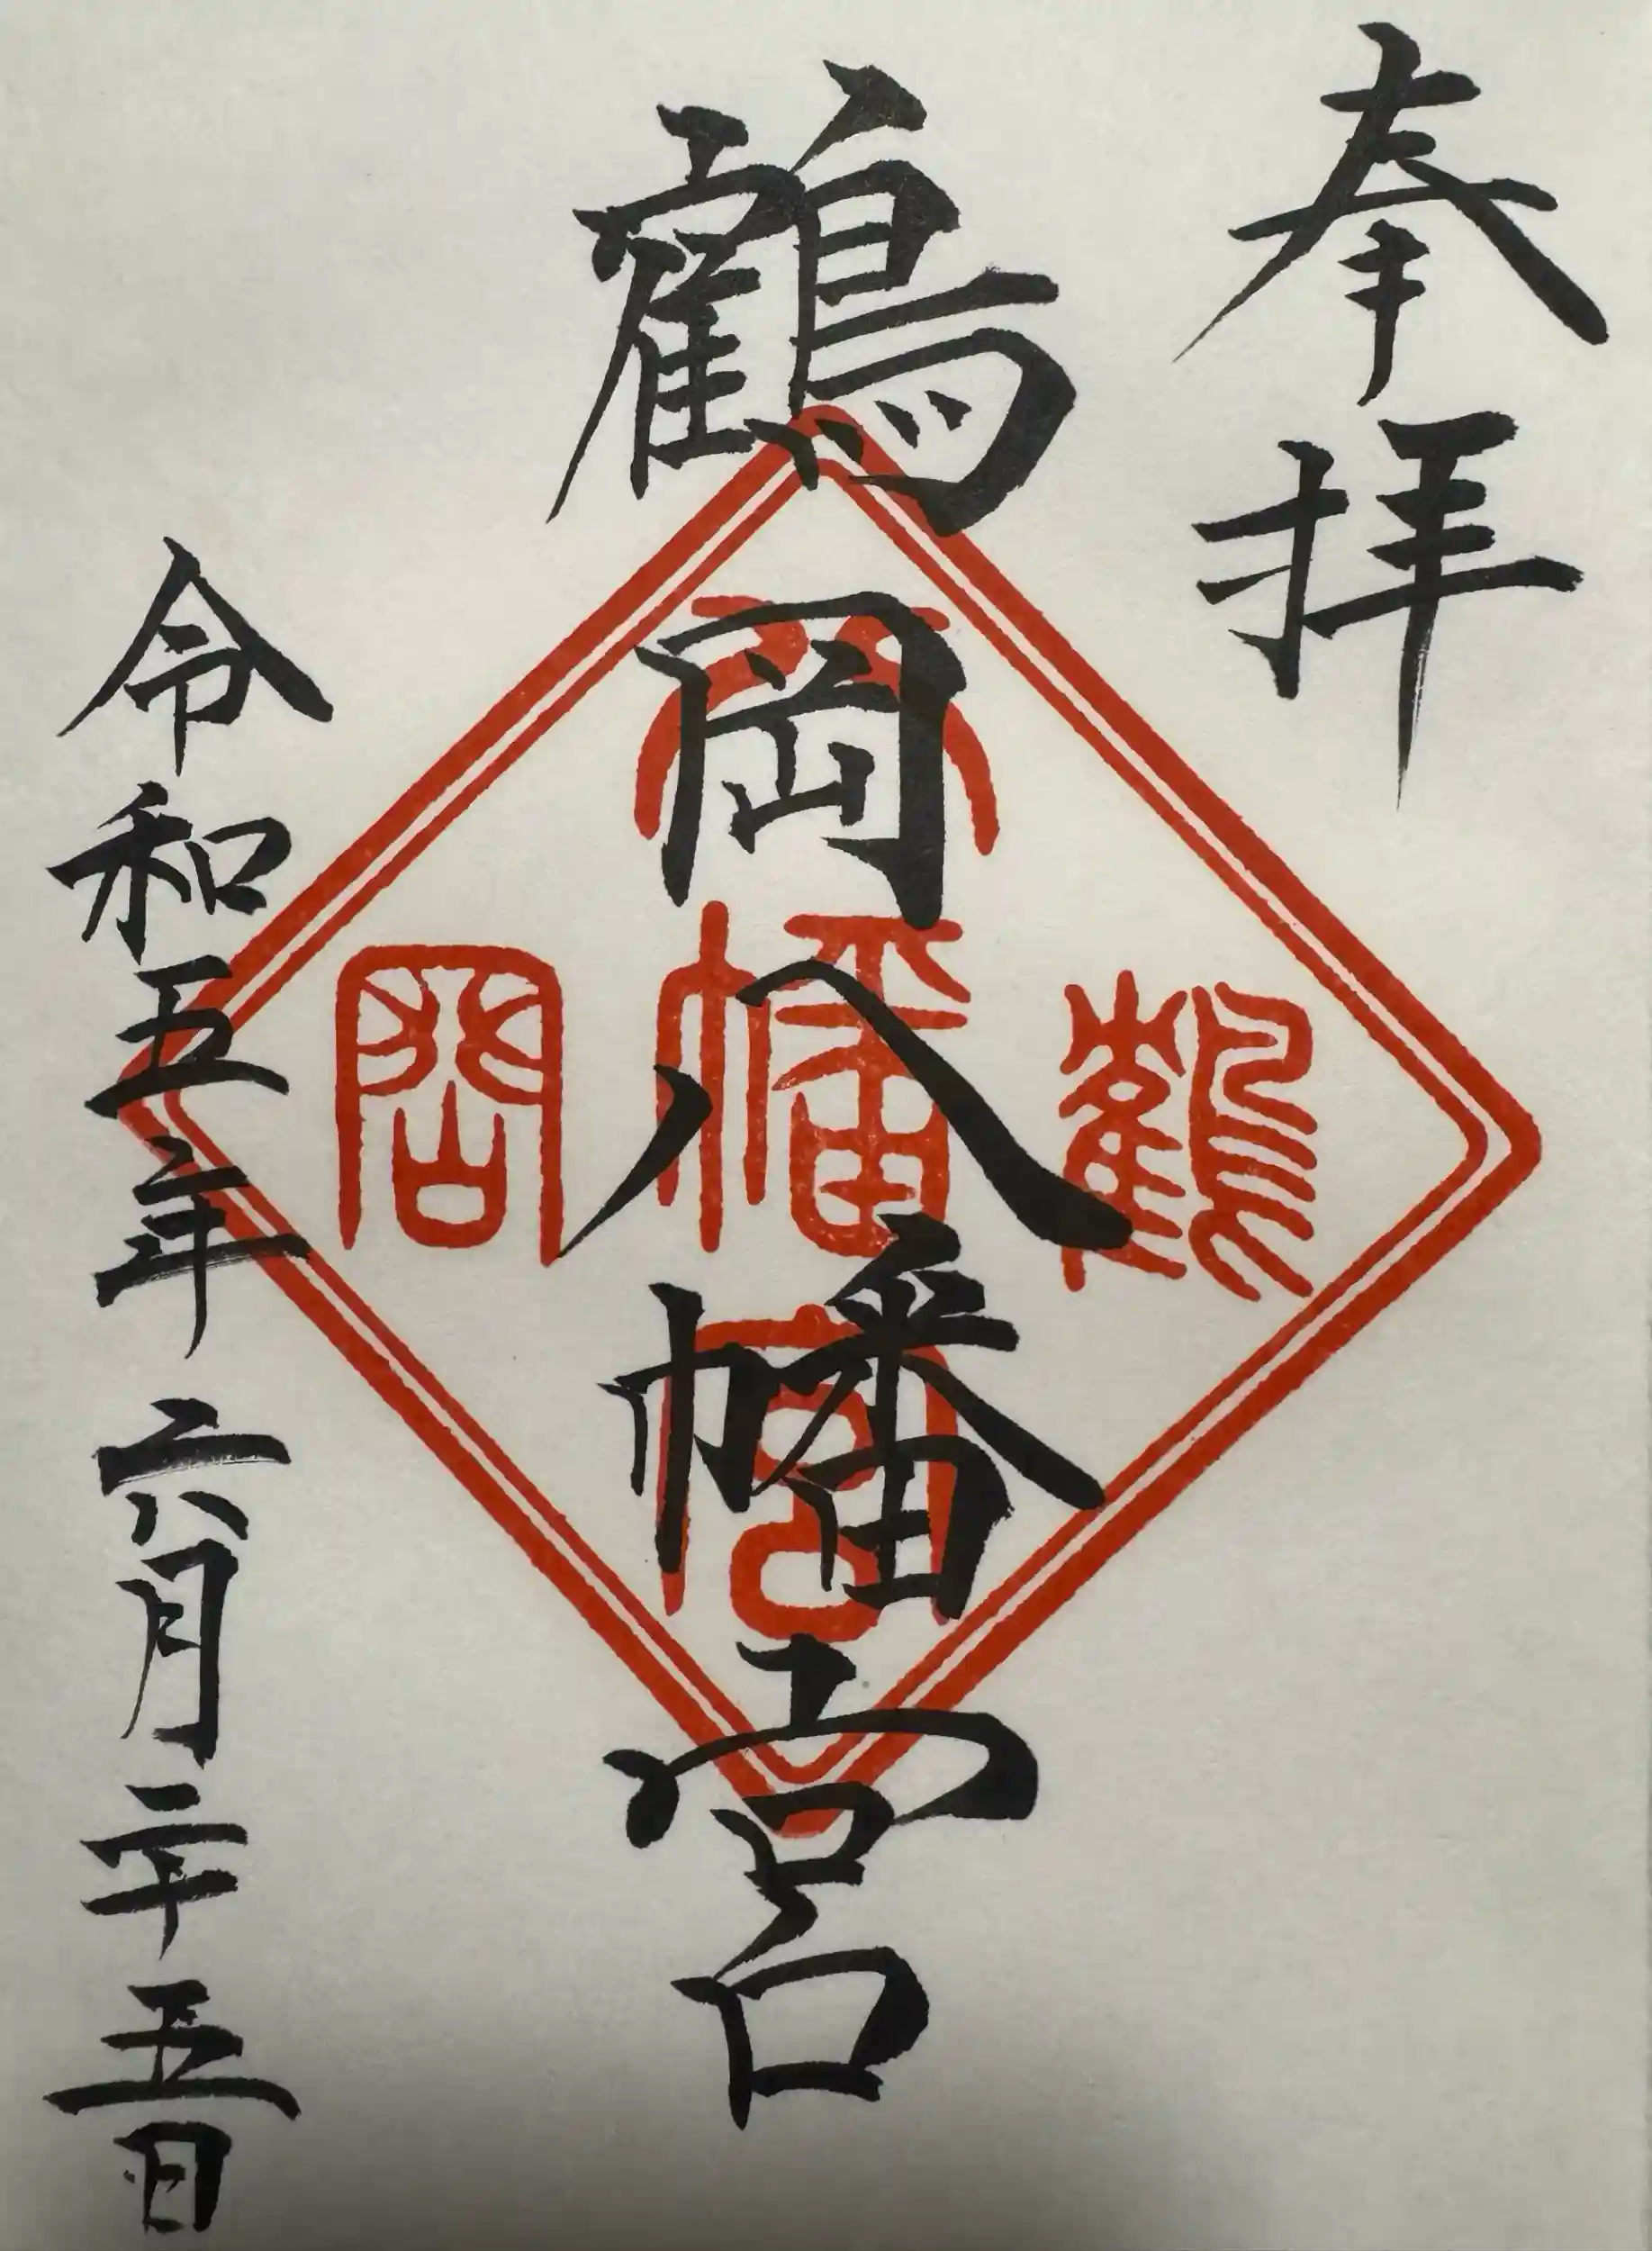 奉拝
鶴岡八幡宮
鶴
八幡宮
岡
令和五年六月二十五日